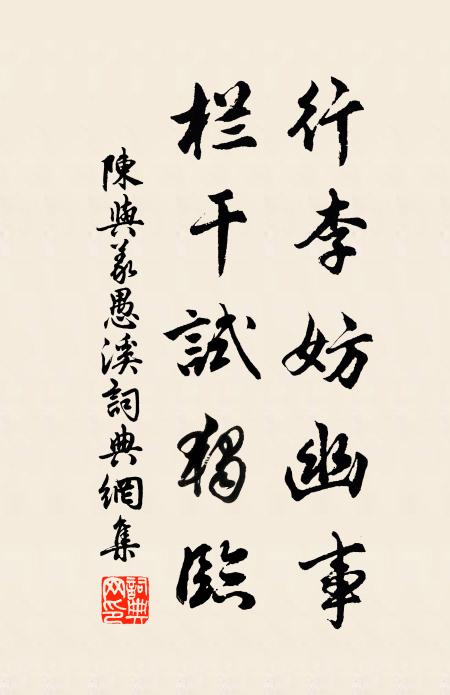 行李妨幽事
栏干試獨臨
陳與義愚溪詞典網集
詞典网印